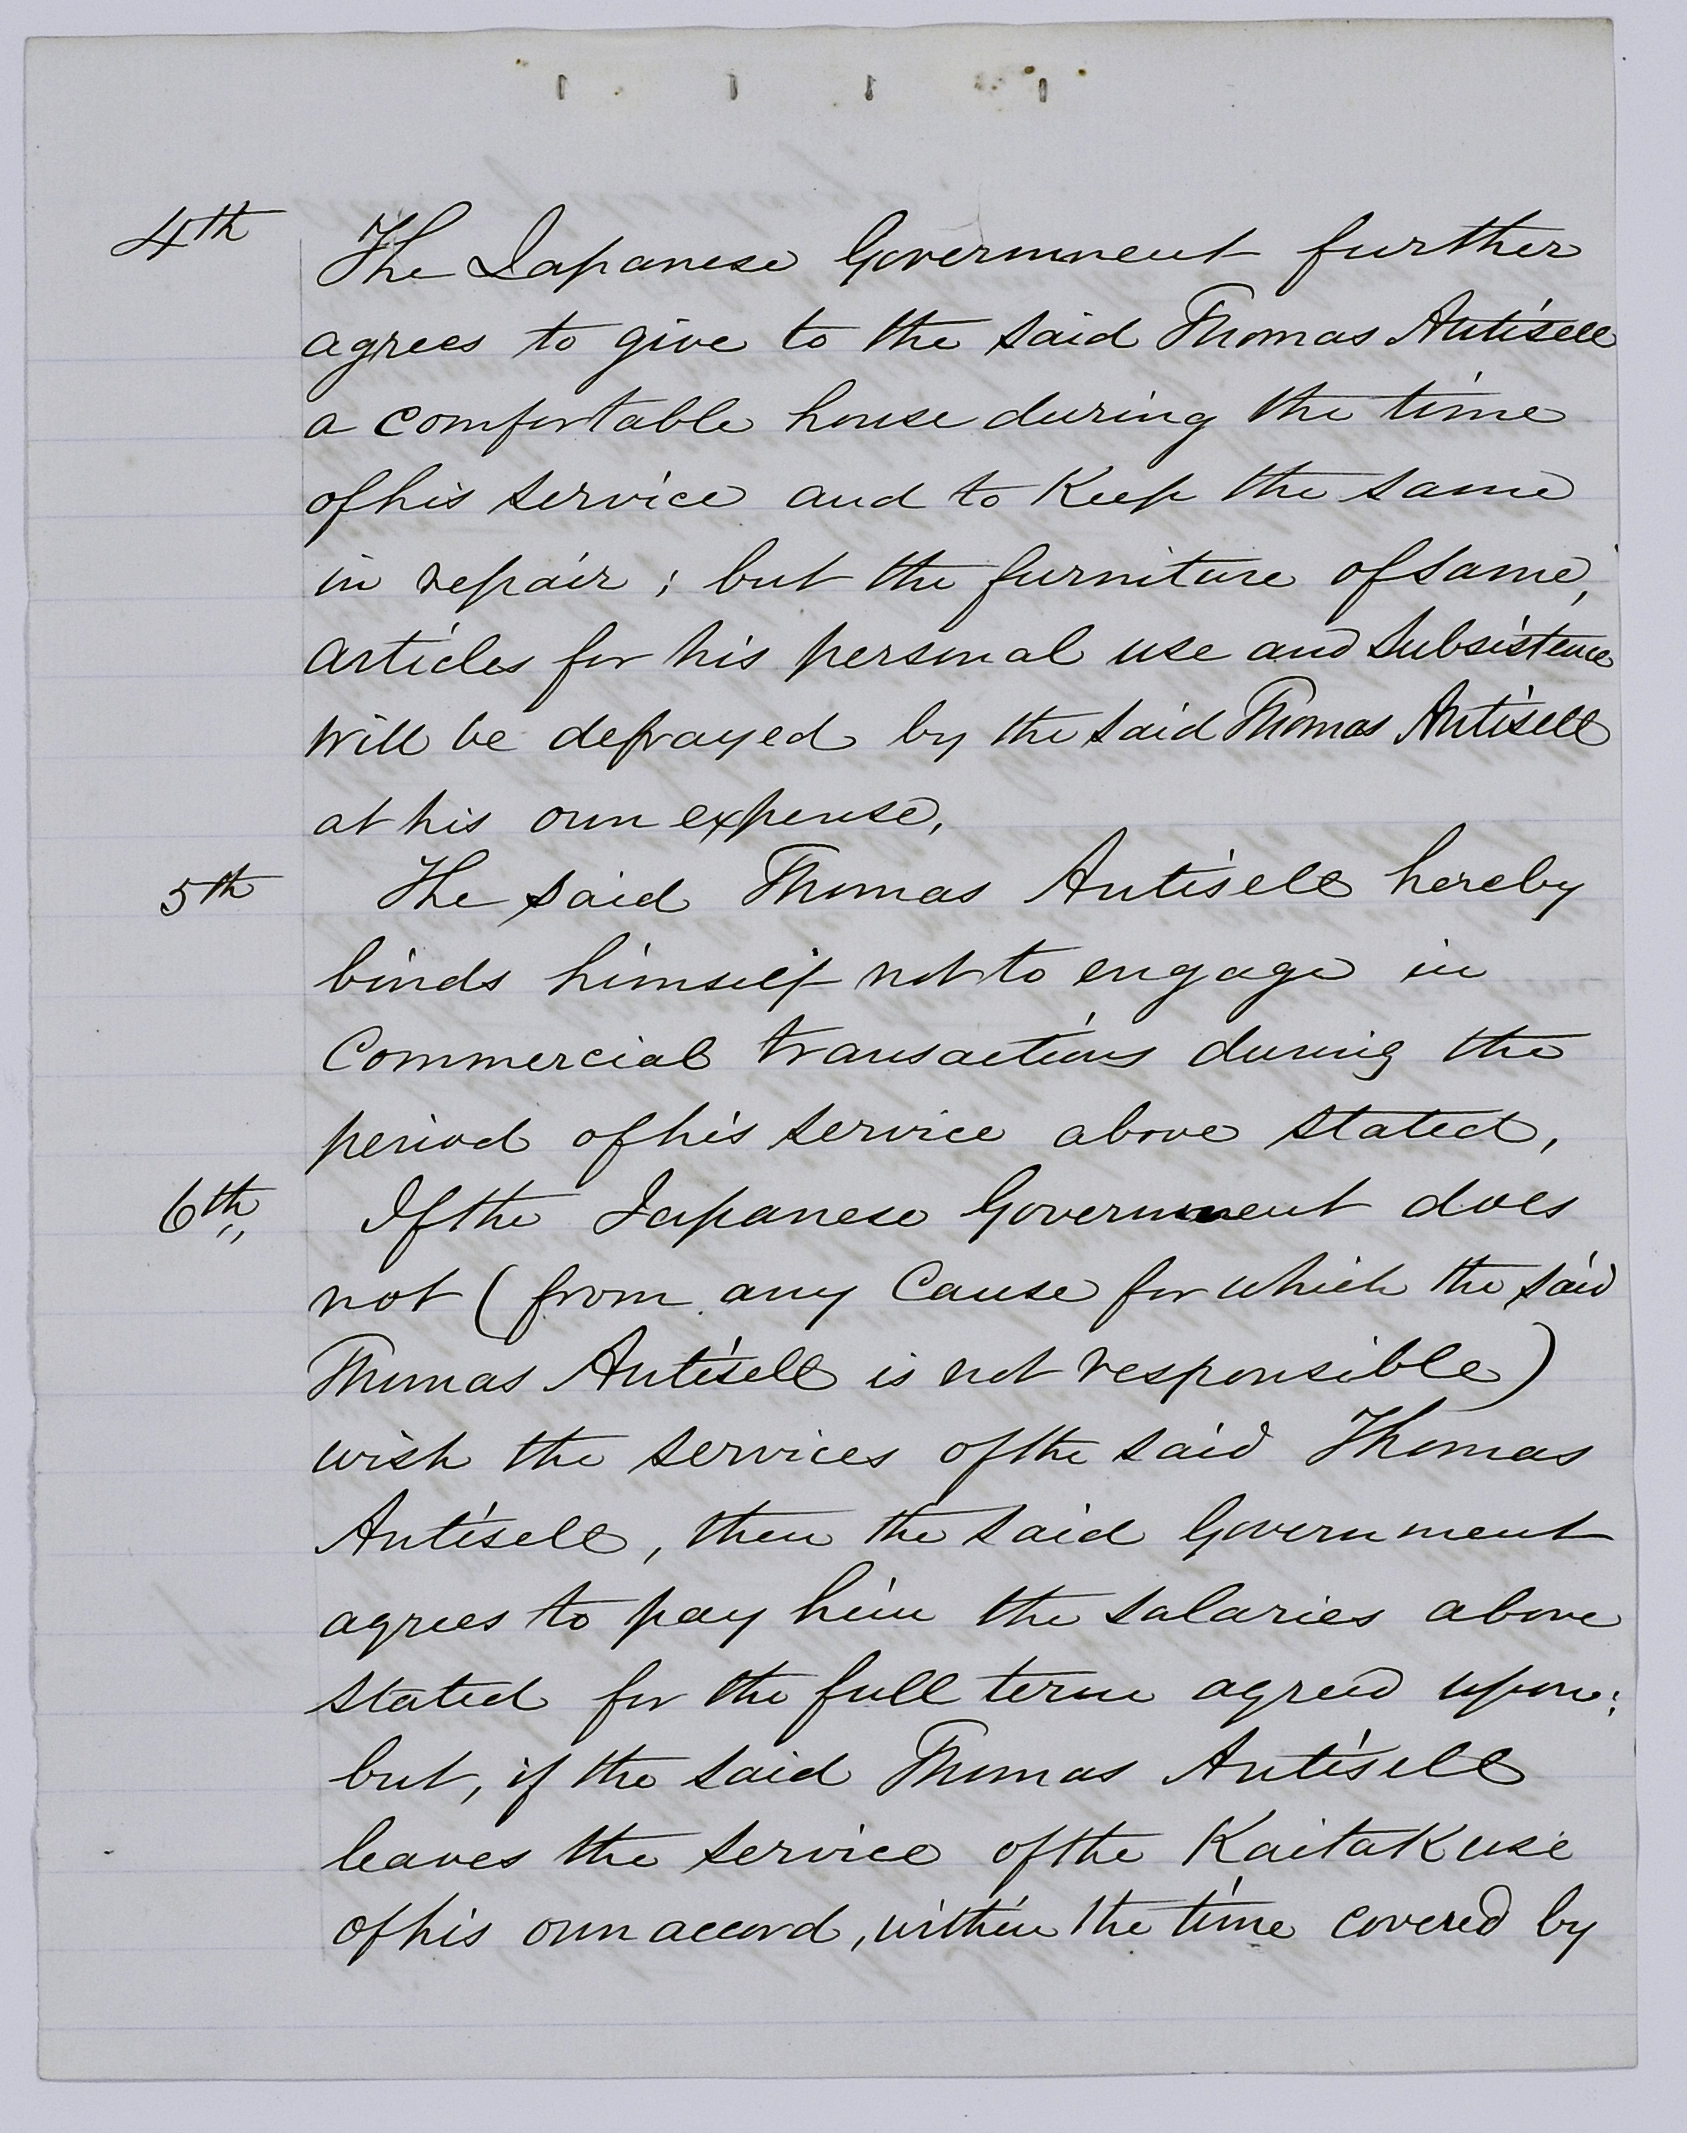 4th The Japanese Government further
agrees to give to the said Thomas Antisell
a comfortable house during the time
of his service and to Keep the same
in repair; but the furniture of same,
articles for his personal use and subsistence
will be defrayed by the said Thomas Antisell
at his own expense,
5th The said Thomas Antisell hereby
binds himself not to engage in
Commercial transactions during the
period of his service above stated,
6th,, If the Japanese Government does
not (from any Cause for which the said
Thomas Antisell is not responsible)
wish the services of the said Thomas
Antisell, then the said Government
agrees to pay him the salaries above
stated for the full term agreed upon;
but, if the said Thomas Antisell
leaves the service of the KaitaKuse
of his own accord, within the time covered by